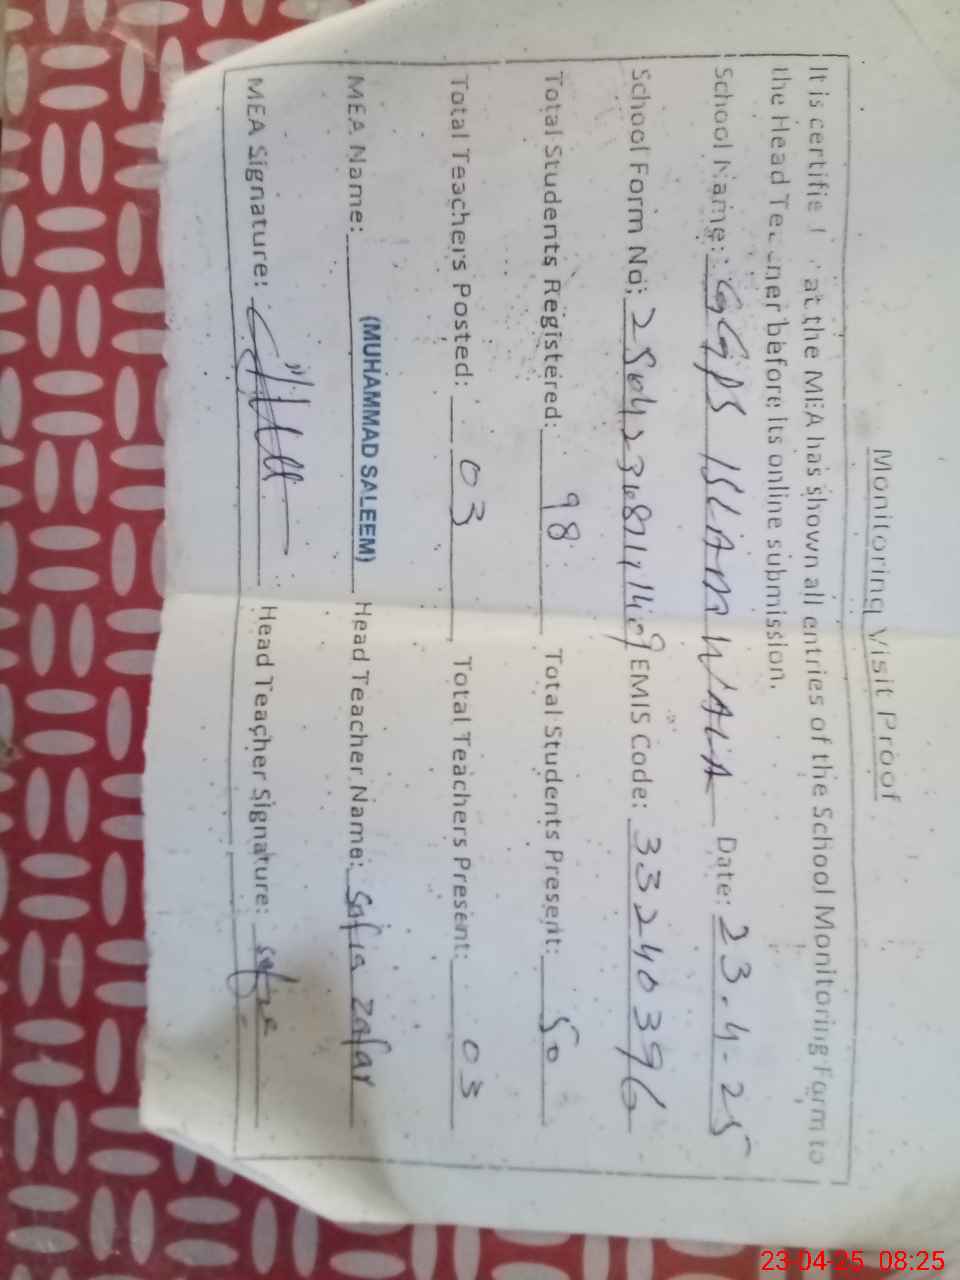 Monitoring Visit Proof
It is certified that the MEA has shown all entries of the School Monitoring Form to
the Head Teacher before its online submission.
School Name: GGPS ISLAM WALA Date: 23.4.25
School Form No: EMIS Code: 33240396
Total Students Registered: 98 Total Students Present: 50
Total Teachers Posted: 03 Total Teachers Present: 03
MEA Name: (MUHAMMAD SALEEM) Head Teacher Name: Safia Zafar
MEA Signature: Head Teacher Signature: Safia
23-04-25 08:25